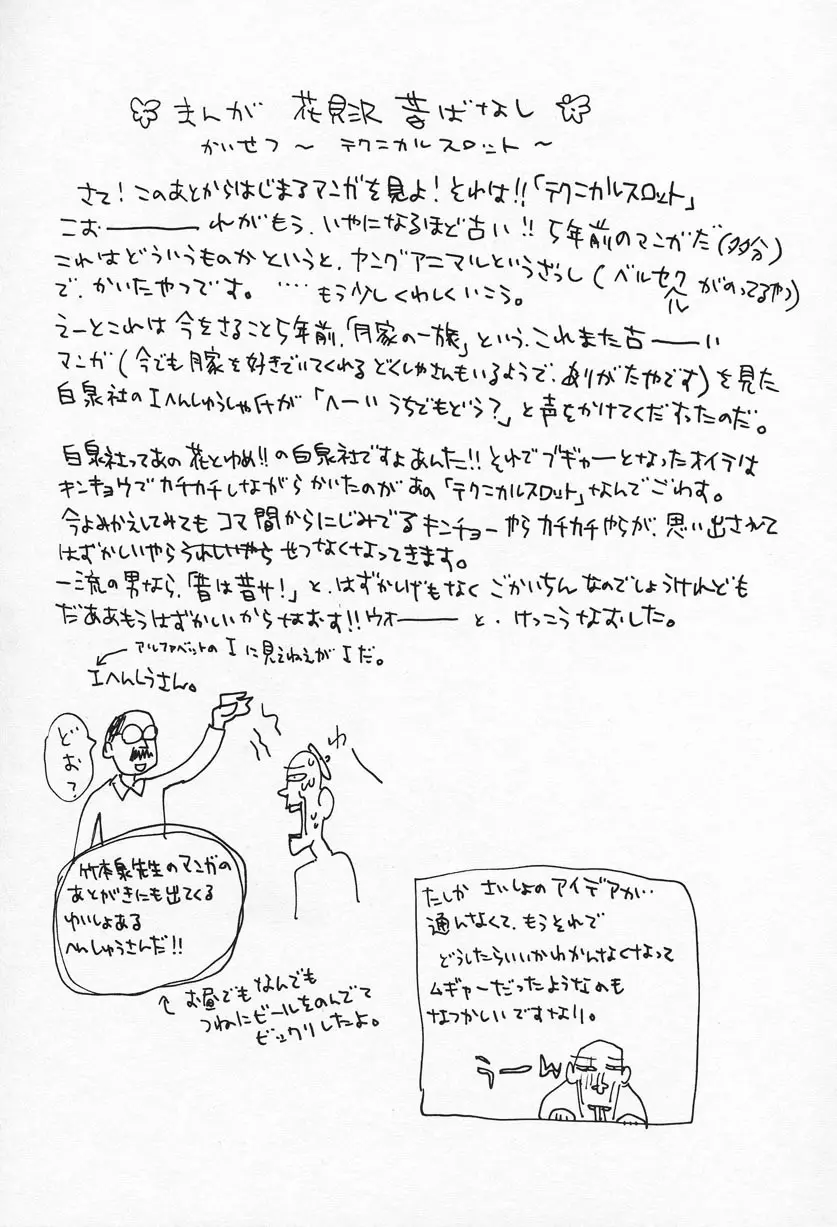 まんが 花見沢 昔ばなし
かいせつ～ テクニカルスロット ～
さて！このあとからはじまるマンガを見よ！それは！！「テクニカルスロット」
こお――――れがもう、いやになるほど古い！！ 5年前のマンガだ（多分）
これはどういうものかというと、ヤングアニマルというざっし（ベルセルクがのってるやつ）
で、かいたやつです。 ‥‥ もう少しくわしくいこう。
えーとこれは今をさること5年前、「月家の一族」という、これまた古――い
マンガ（今でも月家を好きでいてくれるどくしゃさんもいるようで、ありがたやです）を見た
白泉社のIへんしゅうしゃ氏が「へーいうちでもどう？」と声をかけてくだすったのだ。
白泉社ってあの花とゆめ！！の白泉社ですよあんた！！それでブギャーとなったオイラは
キンキョウでカチカチしながらかいたのがあの「テクニカルスロット」なんでごわす。
今よみかえしてみてもコマ間からにじみでるキンチョーやらカチカチやらが、思い出されて
はずかしいやら せつなくなってきます。
一流の男なら、「昔は昔サ！」と、はずかしげもなくごかいちんなのでしょうけれども
だああもうはずかしいからなおす！！ウオ―――と、けっこうなおした。
アルファベットのIに見えねえがIだ。
Iへんしうさん。
どお？
わ
竹本泉先生のマンガの
あとがきにも出てくる
ゆいしょある
へんしゅうさんだ！！
お昼でもなんでも
つねにビールをのんでて
ビックリしたよ。
たしか さいしょのアイデアが‥
通んなくて、もうそれで
どうしたらいいかわかんなくなって
ムギャーだったようなのも
なつかしいですなり。
うーん